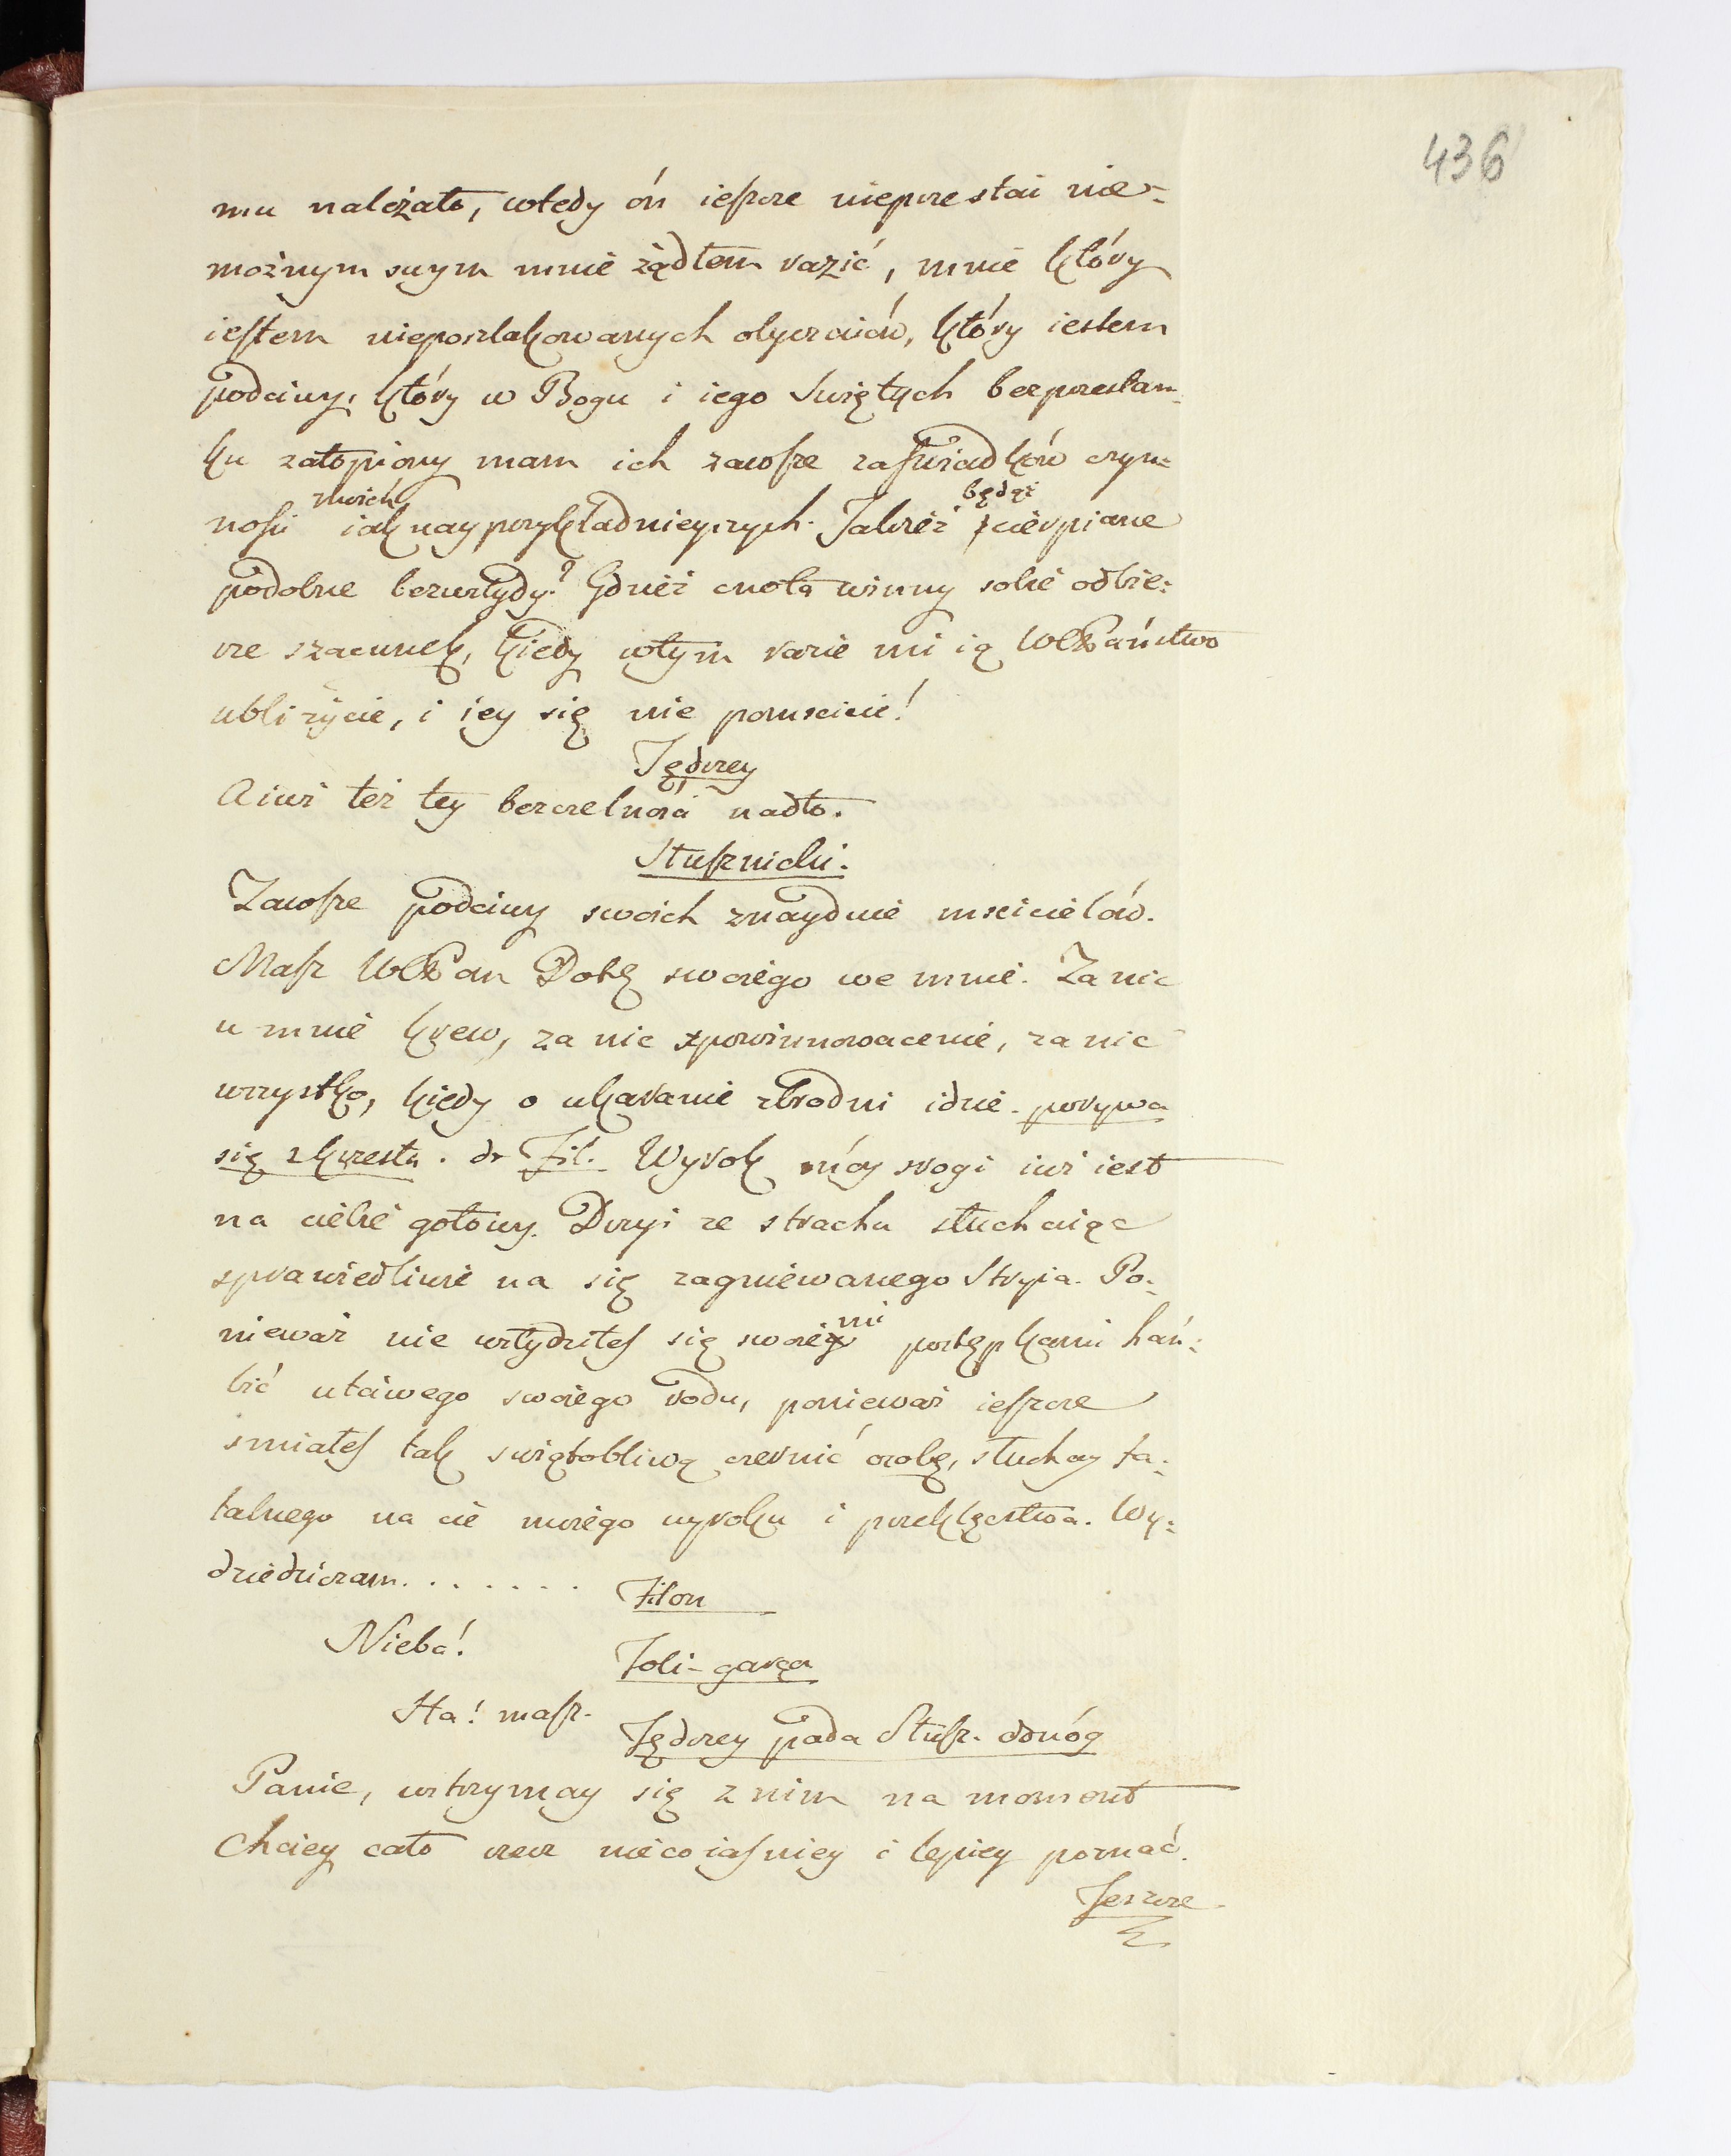 436
mu należało, wtedy ón ieszcze nieprzestai nie-
możnym swym mnie żądłem razić, mnie który
iestem nieposzlakowanych obyczaiów, który iestem
podciwy, który w Bogu i iego Swiętych bezprzestan-
ku zatopiony mam ich zawsze zaswiadków czyn-
nosci moich iak nayprzykładnieyszych. Jakzeż będąż cierpiane
podobne bezwstydy? Gdzież cnota winny sobie odbie-
rze szacunek, kiedy wtym razie mi ią WPaństwo
ubliżycie, i iey się nie pomscicie!
Jędrzey
A iuż też tey bezczelnosci nadto.
Stusznicki.
Zawsze podciwy swoich znaydzie mscicielów.
Masz WPan Dobr swoiego we mnie. Za nic
u mnie krew, za nic spowinnowacenie, za nic
wszystko, kiedy o ukaranie zbrodni idzie. porywa
się z krzesła. do Fil. Wyrok móy srogi iuż iest
na ciebie gotowy. Drzyi ze strachu słuchaiąc
sprawiedliwie na się zagniewanego Stryia. Po-
nieważ nie wstydziłes się swoiemi postępkami hań-
bić utciwego swoiego rodu, ponieważ ieszcze
smiałes tak swiątobliwą czernić osobę, słuchay fa-
talnego na cie moiego wyroku i przeklęstwa. Wy-
dziedziczam.......
Filon
Nieba!
Joli-garça
Ha! masz.
Jędrzey pada Stusz. donóg
Panie, wstrzymay się z nim na moment
Chciey cało rzecz nieco iasniey i lepiey poznać.
Jeszcze